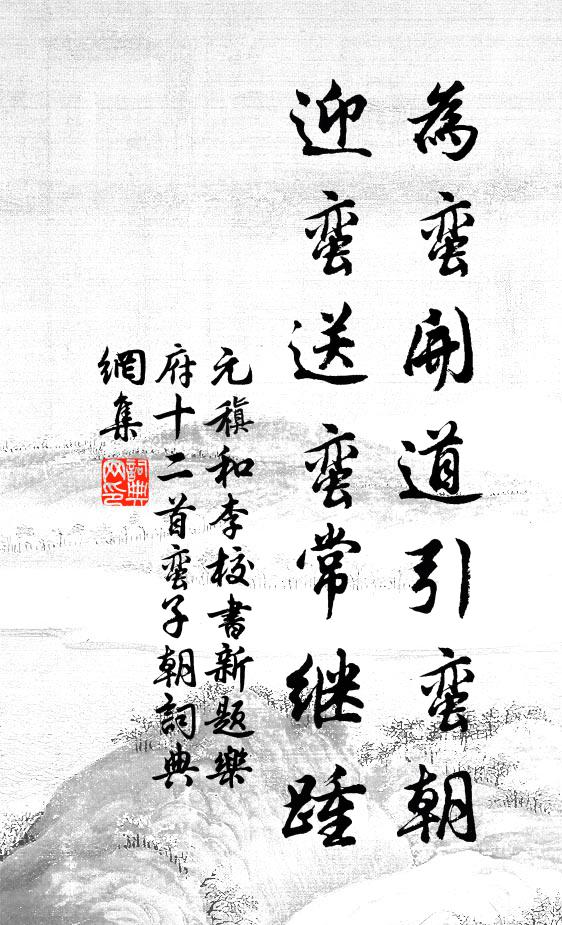 為蛮開道引蛮朝
迎蛮送蛮常继踵
元稹和李校書新題樂
府十二首蛮子朝詞典
網集
詞典
网印